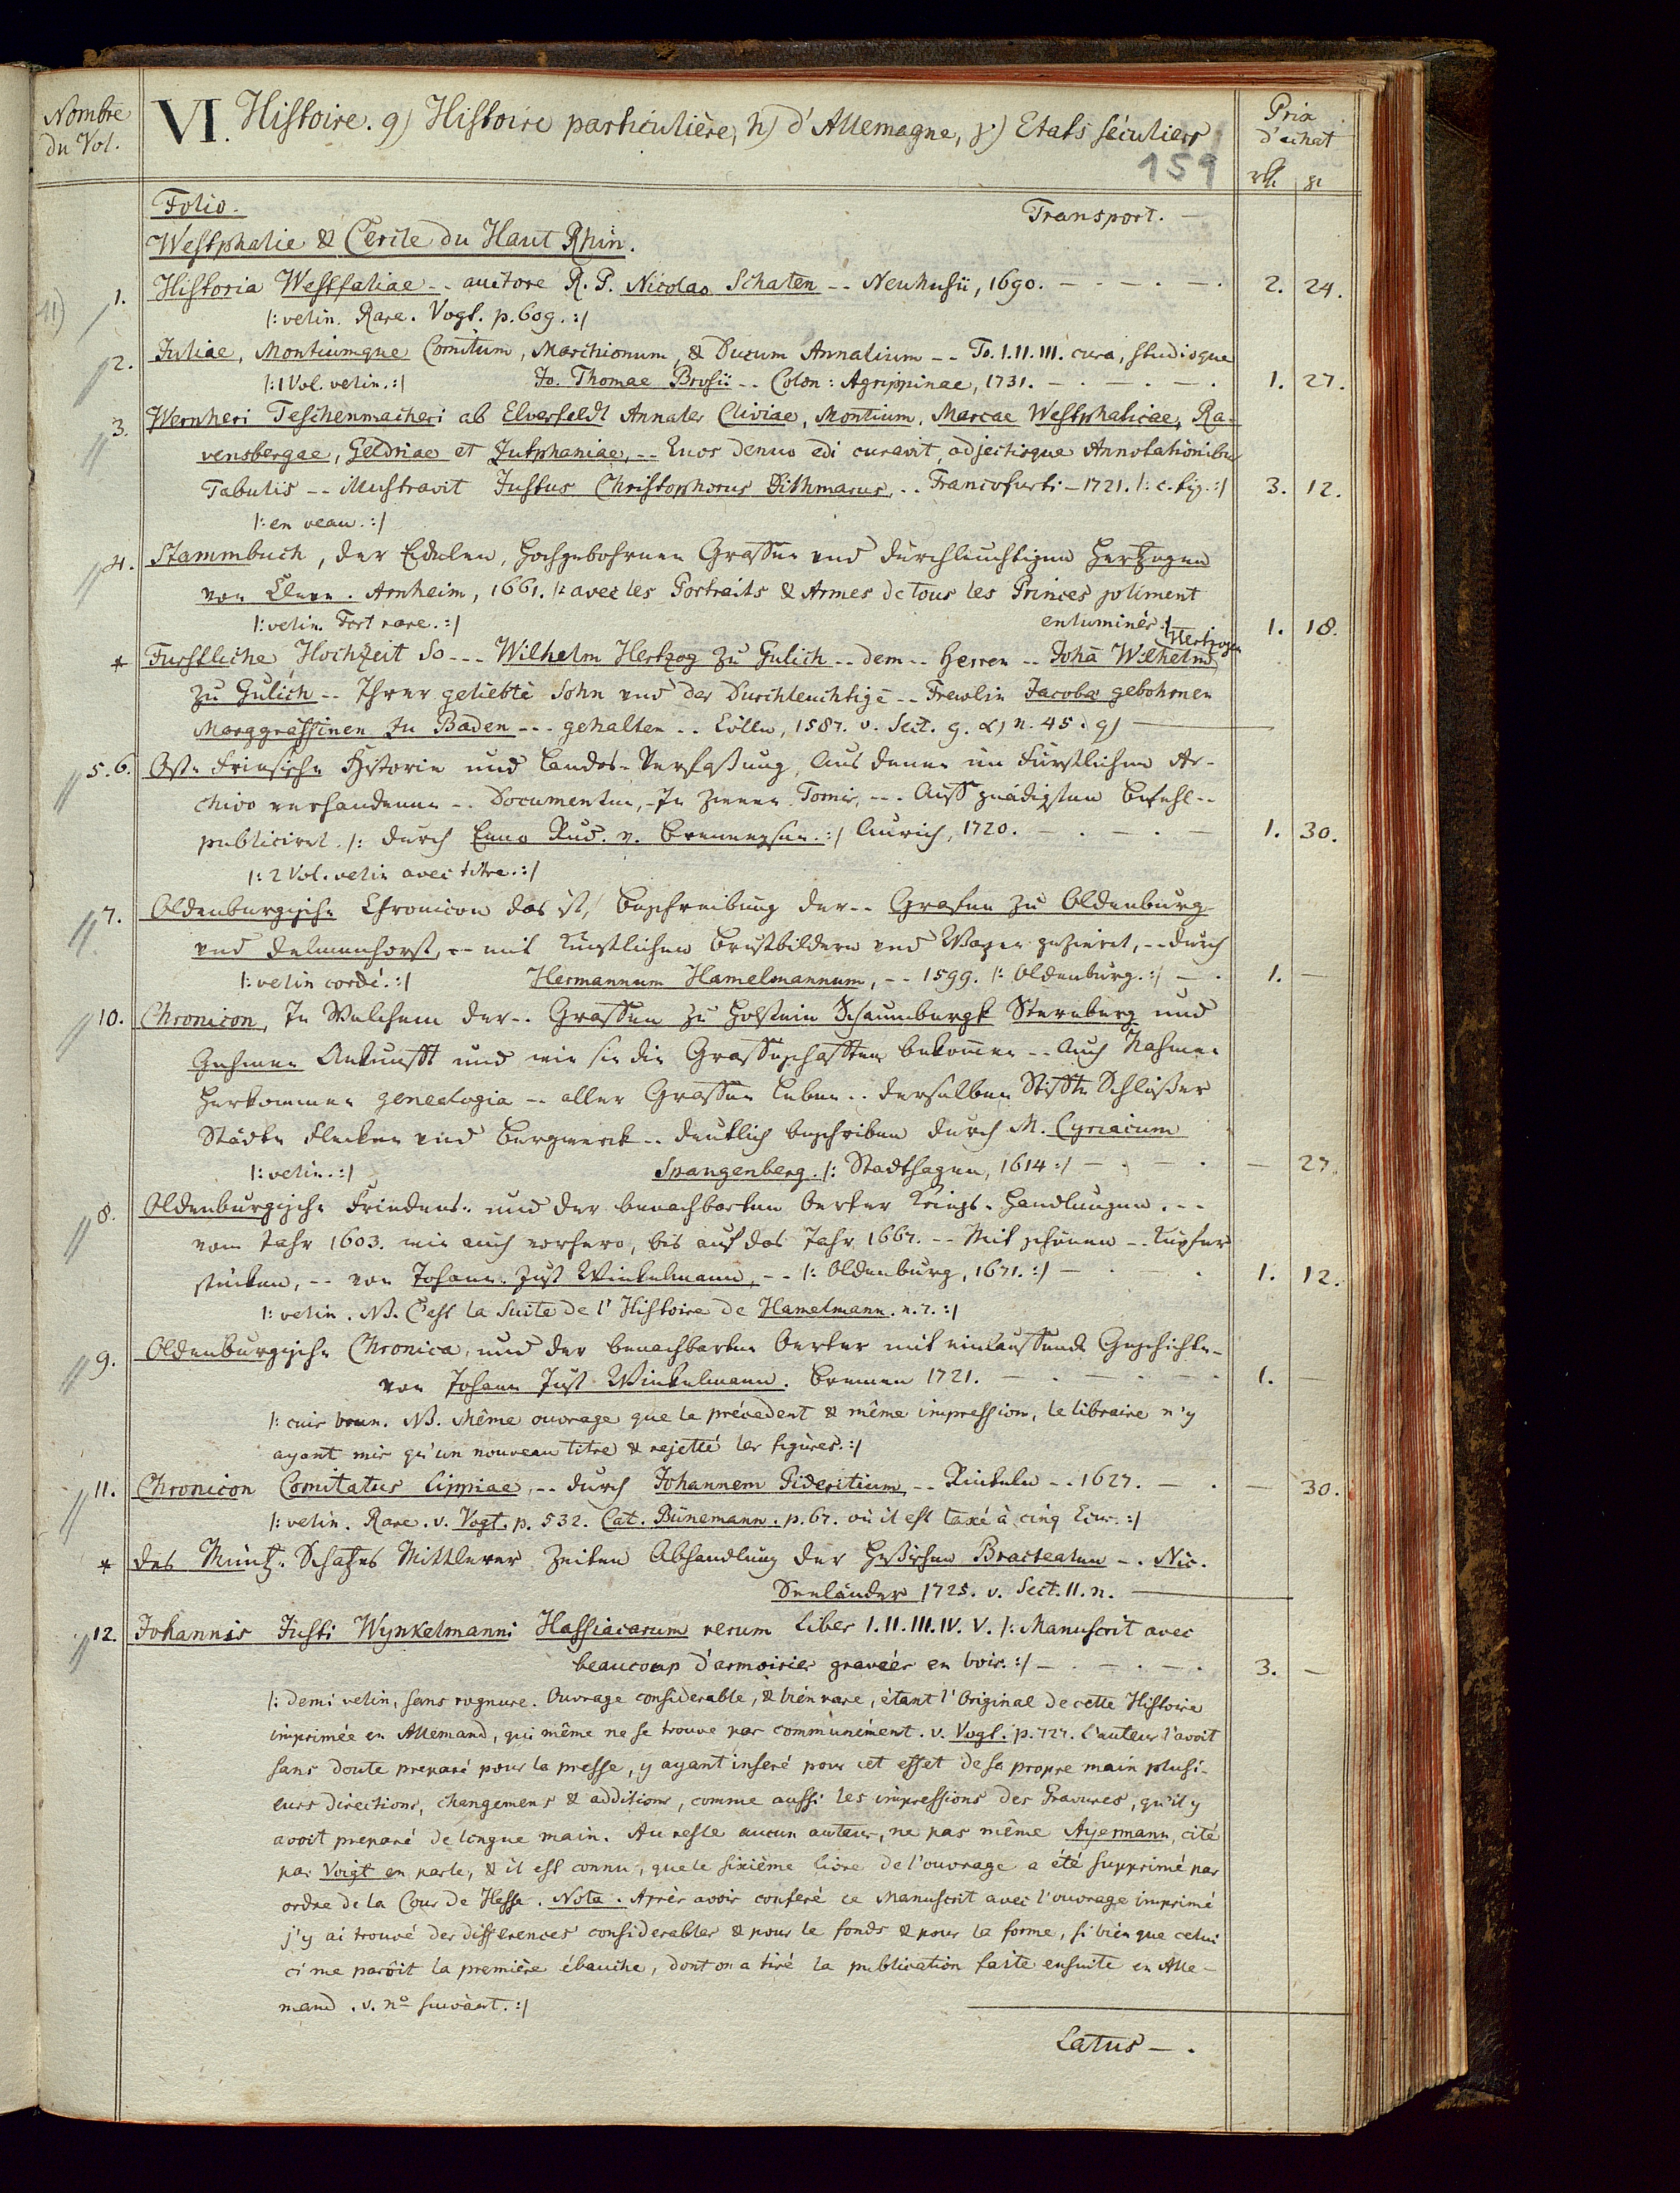 Nombre du Vol.
VI. Histoire. g) Histoire particulière, h) d'Allemagne, γ.) Etats séculiers
Prix d'achat
159
rth. gr
Folio. Transport. —
Westphalie & Cercle du Haut Rhin.
11)
1. Historia Westfaliae -- auctore R. P. Nicolao Schaten -- Neuhusii, 1690. — . — . — . 2. 24.
/: velin. Rare. Vogt. p. 609. :/
2. Juliae, Montiumque Comitum, Marchionum, & Ducum Annalium -- To. I. II. III. cura, studioque
/: 1 Vol. velin. :/ Jo. Thomae Brosii -- Colon: Agrippinae, 1731. — . — . — . 1. 27.
3. Wernheri Teschenmacheri ab Elverfeldt Annales Cliviae, Montium, Marcae Westphalicae, Ra-
vensbergae, Geldriae et Zutphaniae, -- Quos denuo edi curavit, adjectisque Annotationibus
Tabulis -- illustravit Justus Christophorus Dithmarus, -- Francofurti — 1721. /: c. fig. :/ 3. 12.
/: en veau. :/
4. Stammbuch, der Edelen, Hochgebohrnen Graffen und durchleuchtigen Hertzogen
von Cleve. Arnheim, 1661. /: avec les Portraits & Armes de tous les Princes joliment
/: velin. Fort rare. :/ enluminés :/ 1. 18.
* Furstliche Hochzeit So --- Wilhelm Hertzog zu Gulich -- dem -- Herren -- Johā Wilhelms Hertzogen
zu Gulich -- Ihrer geliebtē Sohn und der Durchleuchtigē -- Frewlin Jacobæ gebohrnen
Marggräffinen zu Baden --- gehalten -- Cölln, 1587. v. Sect. g. α) n. 45. g) —
5. 6. Ost-Friesische Historie und Landes-Verfaßung, Aus denen im Fürstlichen Ar-
chivo verhandenen -- Documenten, -- In zween Tomis, --- Auff gnädigsten Befehl --
publiciret. /: durch Enno Rud. v. Brenneysen. :/ Aurich, 1720. — . — . — 1. 30.
/: 2 Vol. velin avec titre. :/
7. Oldenburgische Chronicon das ist, Beschreibung der -- Grafen zu Oldenburg
und Delmenhorst, -- mit künstlichen Brustbildern und Wapen gezieret, -- durch
/: velin cordé. :/ Hermannum Hamelmannum, -- 1599. /: Oldenburg. :/ — . 1. —
10. Chronicon, In Welchem der -- Graffen zu Holstein Schaumburgk Sternberg und
Gehmen Ankunfft und wie sie die Graffschafften bekommen -- Auch Nahmen
Herkommen genealogia -- aller Graffen Leben -- derselben Stiffte Schlösser
Städte Flecken und Bergwerck -- deutlich beschrieben durch M. Cyriacum
/: velin. :/ Spangenberg. /: Stadthagen, 1614 :/ — . — . — 27.
8. Oldenburgische Friedens- und der benachbarten Oerter Kriegs-Handlungen. --
vom Jahr 1603. wie auch vorhero, bis auf das Jahr 1667. -- Mit schönen -- Kupfer
stücken, -- von Johann-Just Winkelmann, -- /: Oldenburg, 1671. :/ — . — . 1. 12.
/: velin. NB. C'est la Suite de l'Histoire de Hamelmann. n. 7. :/
9. Oldenburgische Chronica, und der benachbarten Oerter mit einlauffende Geschichte -
von Johann Just Winkelmann. Bremen 1721. — . — . — . 1. —
/: cuir brun. NB. Même ouvrage que le précedent & même impression, le libraire n'y
ayant mis qu'un nouveau titre & rejetté les figures. :/
11. Chronicon Comitatus Lippiae, -- durch Johannem Pideritium -- Rinteln -- 1627. — . — 30.
/: velin. Rare. v. Vogt. p. 532. Cat. Bünemann. p. 67. où il est taxé à cinq Ecus. :/
* Des Müntz-Schatzes Mittlerer Zeiten Abhandlung der Heßischen Bracteaten -- Nic.
Seeländer 1725. v. Sect. II. n. —
12. Johannis Justi Wynkelmanni Hassiacarum rerum Liber I. II. III. IV. V. /: Manuscrit avec
beaucoup d'armoiries gravées en bois. :/ — . — . — . 3. —
/: demi velin, sans rognure. Ouvrage considerable, & bien rare, étant l'Original de cette Histoire
imprimée en Allemand, qui même ne se trouve pas communément. v. Vogt. p. 727. L'auteur l'avoit
sans doute preparé pour la presse, y ayant inseré pour cet effet de sa propre main plusi-
eurs directions, changemens & additions, comme aussi les impressions des Gravures, qu'il y
avoit preparé de longue main. Au reste aucun auteur, ne pas même Ayermann, cité
par Voigt en parle, & il est connu, que le sixième livre de l'ouvrage a été supprimé par
ordre de la Cour de Hesse. Nota. Après avoir conferé ce Manuscrit avec l'ouvrage imprimé
j'y ai trouvé des differences considerables & pour le fonds & pour la forme, si bien que celui
ci me paroit la première ébauche, dont on a tiré la publication faite ensuite en Alle-
mand. v. nº suivant. :/
Latus — .